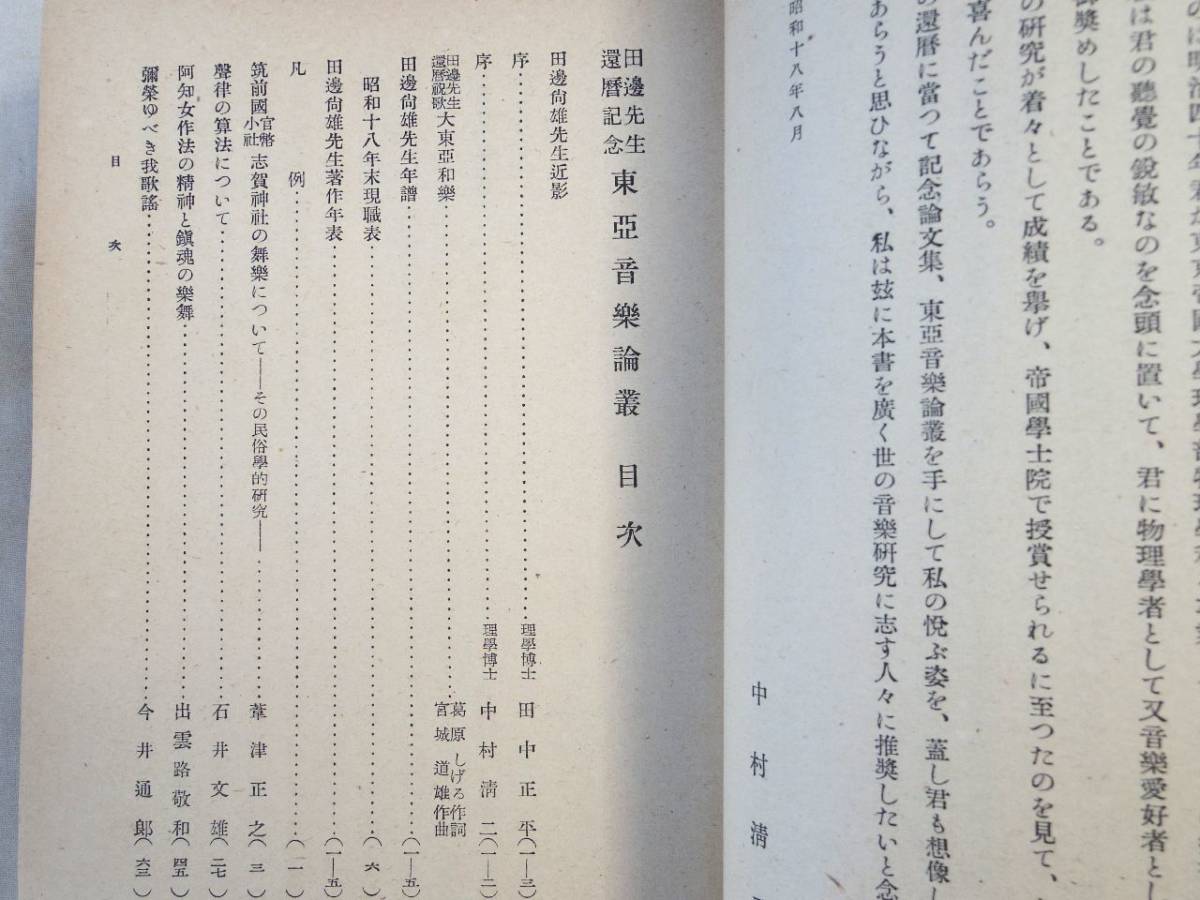 は君の聽覺の銳敏なのを念頭に置いて、君に物理學者として又音樂愛好者とし
奬めしたことである。
の硏究が着々として成績を擧げ、帝國學士院で授賞せられるに至つたのを見て、
喜んだことであらう。
の還曆に當つて記念論文集、東亞音樂論叢を手にして私の悅ぶ姿を、蓋し君も想像し
あらうと思ひながら、私は玆に本書を廣く世の音樂硏究に志す人々に推奬したいと念
昭和十八年八月
中村淸
田邊先生還曆記念 東亞音樂論叢 目次
田邊尙雄先生近影
序 理學博士 田中正平(一—三)
序 理學博士 中村淸二(一—二)
田邊先生還曆祝歌 大東亞和樂 葛原しげる作詞 宮城道雄作曲
田邊尙雄先生年譜 (一—五)
昭和十八年末現職表 (六)
田邊尙雄先生著作年表 (一—五)
凡例 (一)
筑前國官幣小社 志賀神社の舞樂について——その民俗學的硏究—— 葦津正之(三)
聲律の算法について 石井文雄(二七)
阿知女作法の精神と鎭魂の樂舞 出雲路敬和(四五)
彌榮ゆべき我歌謠 今井通郞(六三)
目次